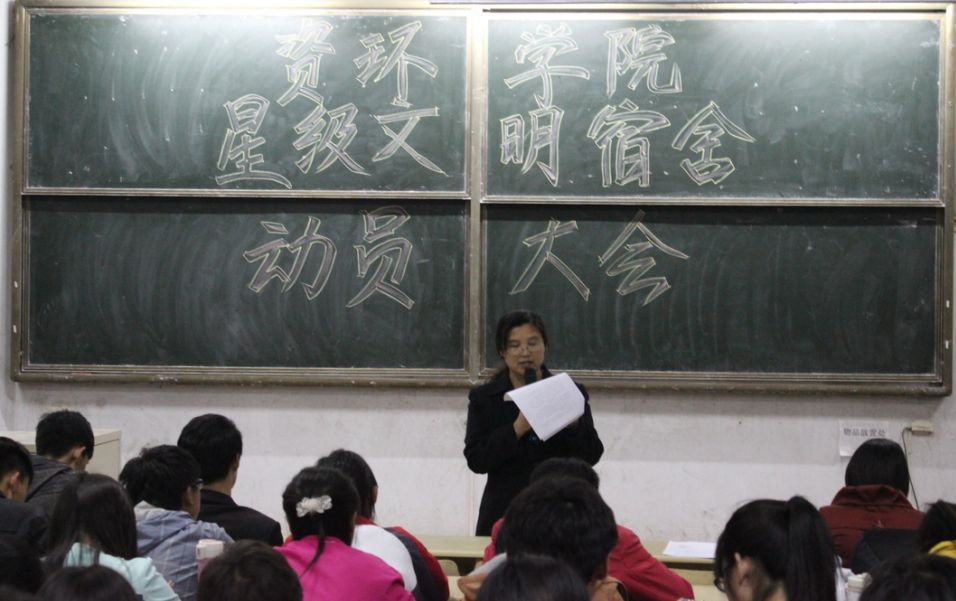 资环学院
星级文明宿舍
动员大会
物品放置处